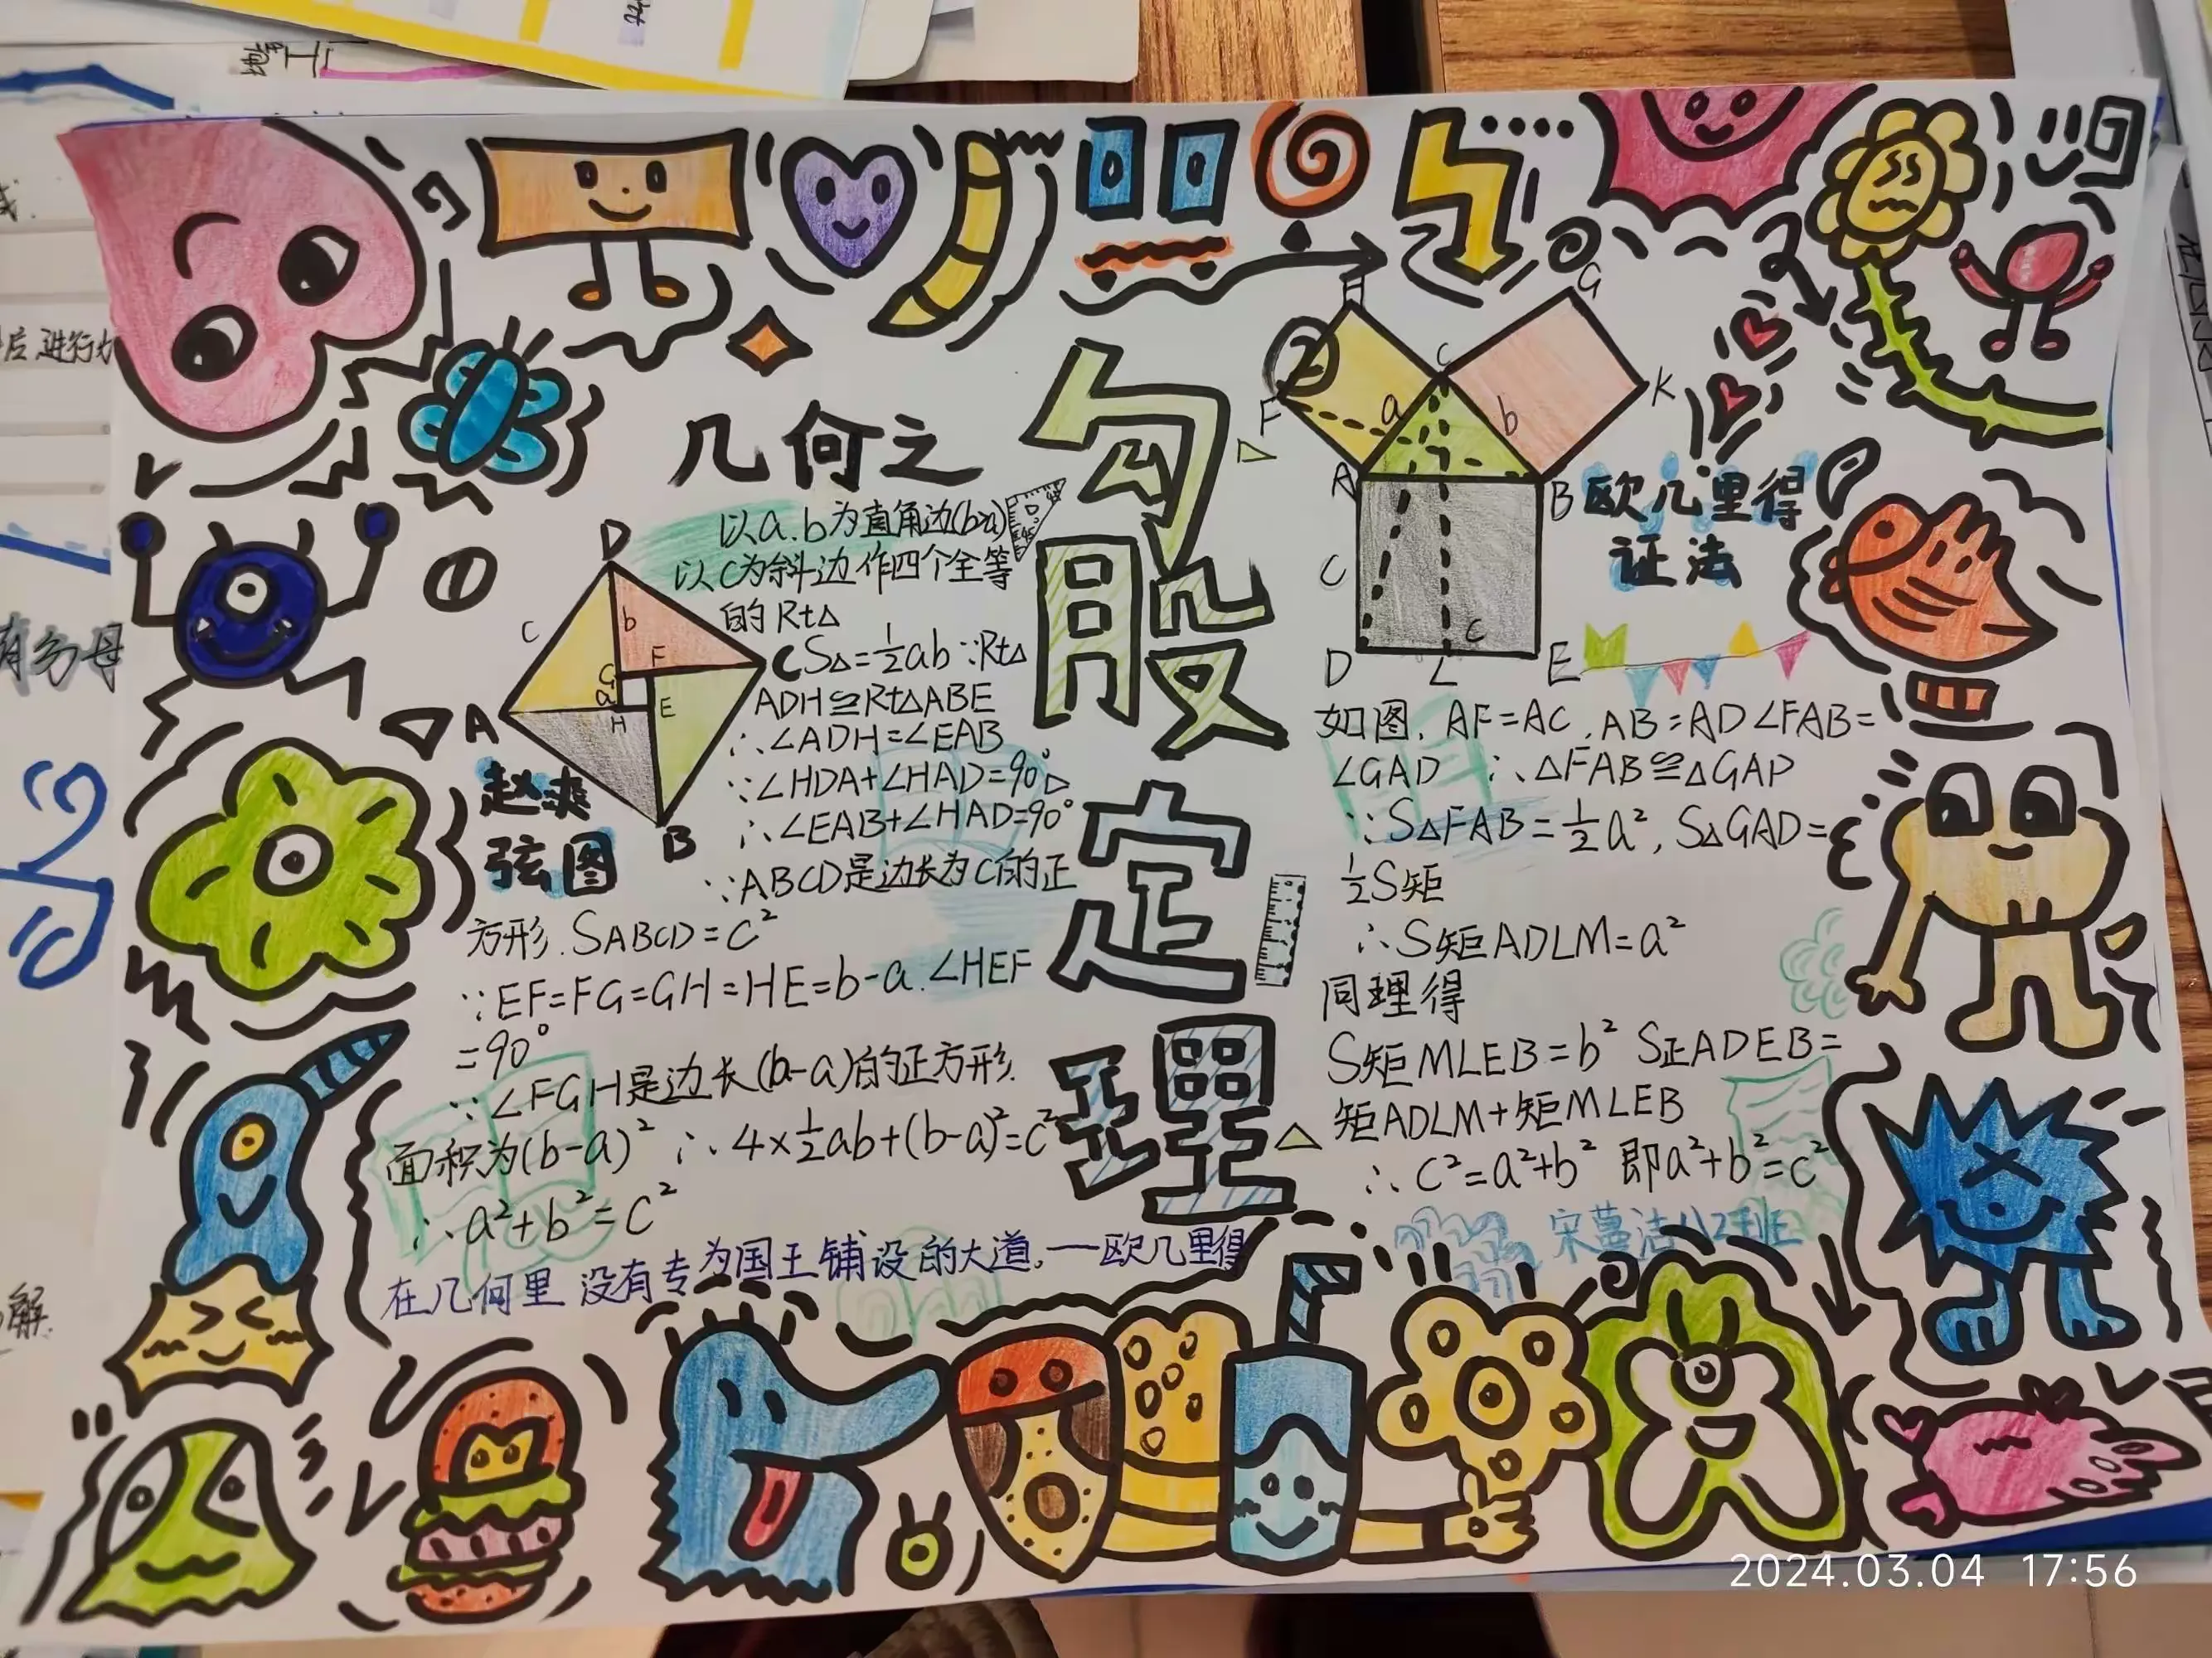 几何之
勾股定理
①
以a.b为直角边(b>a)
以c为斜边作四个全等
的Rt△
S△=½ab∵Rt△
ADH≌Rt△ABE
∴∠ADH=∠EAB
∵∠HDA+∠HAD=90°
∴∠EAB+∠HAD=90°
∵ABCD是边长为C的正
方形.SABCD=c²
∵EF=FG=GH=HE=b-a.∠HEF
=90°
∵∠FGH是边长(b-a)的正方形.
面积为(b-a)² ∴4×½ab+(b-a)²=c²
∴a²+b²=c²
D
c
b
F
G
a
H
E
A
B
C
赵爽
弦图
在几何里 没有专为国王铺设的大道.—欧几里得
②
H
G
C
F
a
b
K
A
B
C
c
D
L
E
欧几里得
证法
如图.AF=AC.AB=AD∠FAB=
∠GAD ∴△FAB≌△GAP
∵S△FAB=½a²,S△GAD=
½S矩
∴S矩ADLM=a²
同理得
S矩MLEB=b² S正ADEB=
矩ADLM+矩MLEB
∴c²=a²+b² 即a²+b²=c²
2024.03.04 17:56
后进行
有分母
解.